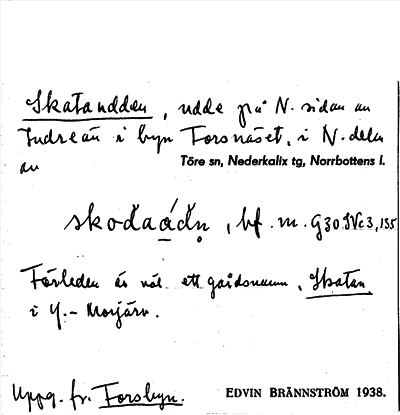 Skatanudden, udde på N. sidan av
Indreån i byn Forsnäset, i N. delen
av
Töre sn, Nederkalix tg, Norrbottens l.
skoďaáďn̥, bf. m. G30
Förleden är väl ett gårdsnamn, Skatan
i Y.- Morjärv.
Uppg. fr. Forsbyn.
EDVIN BRÄNNSTRÖM 1938.